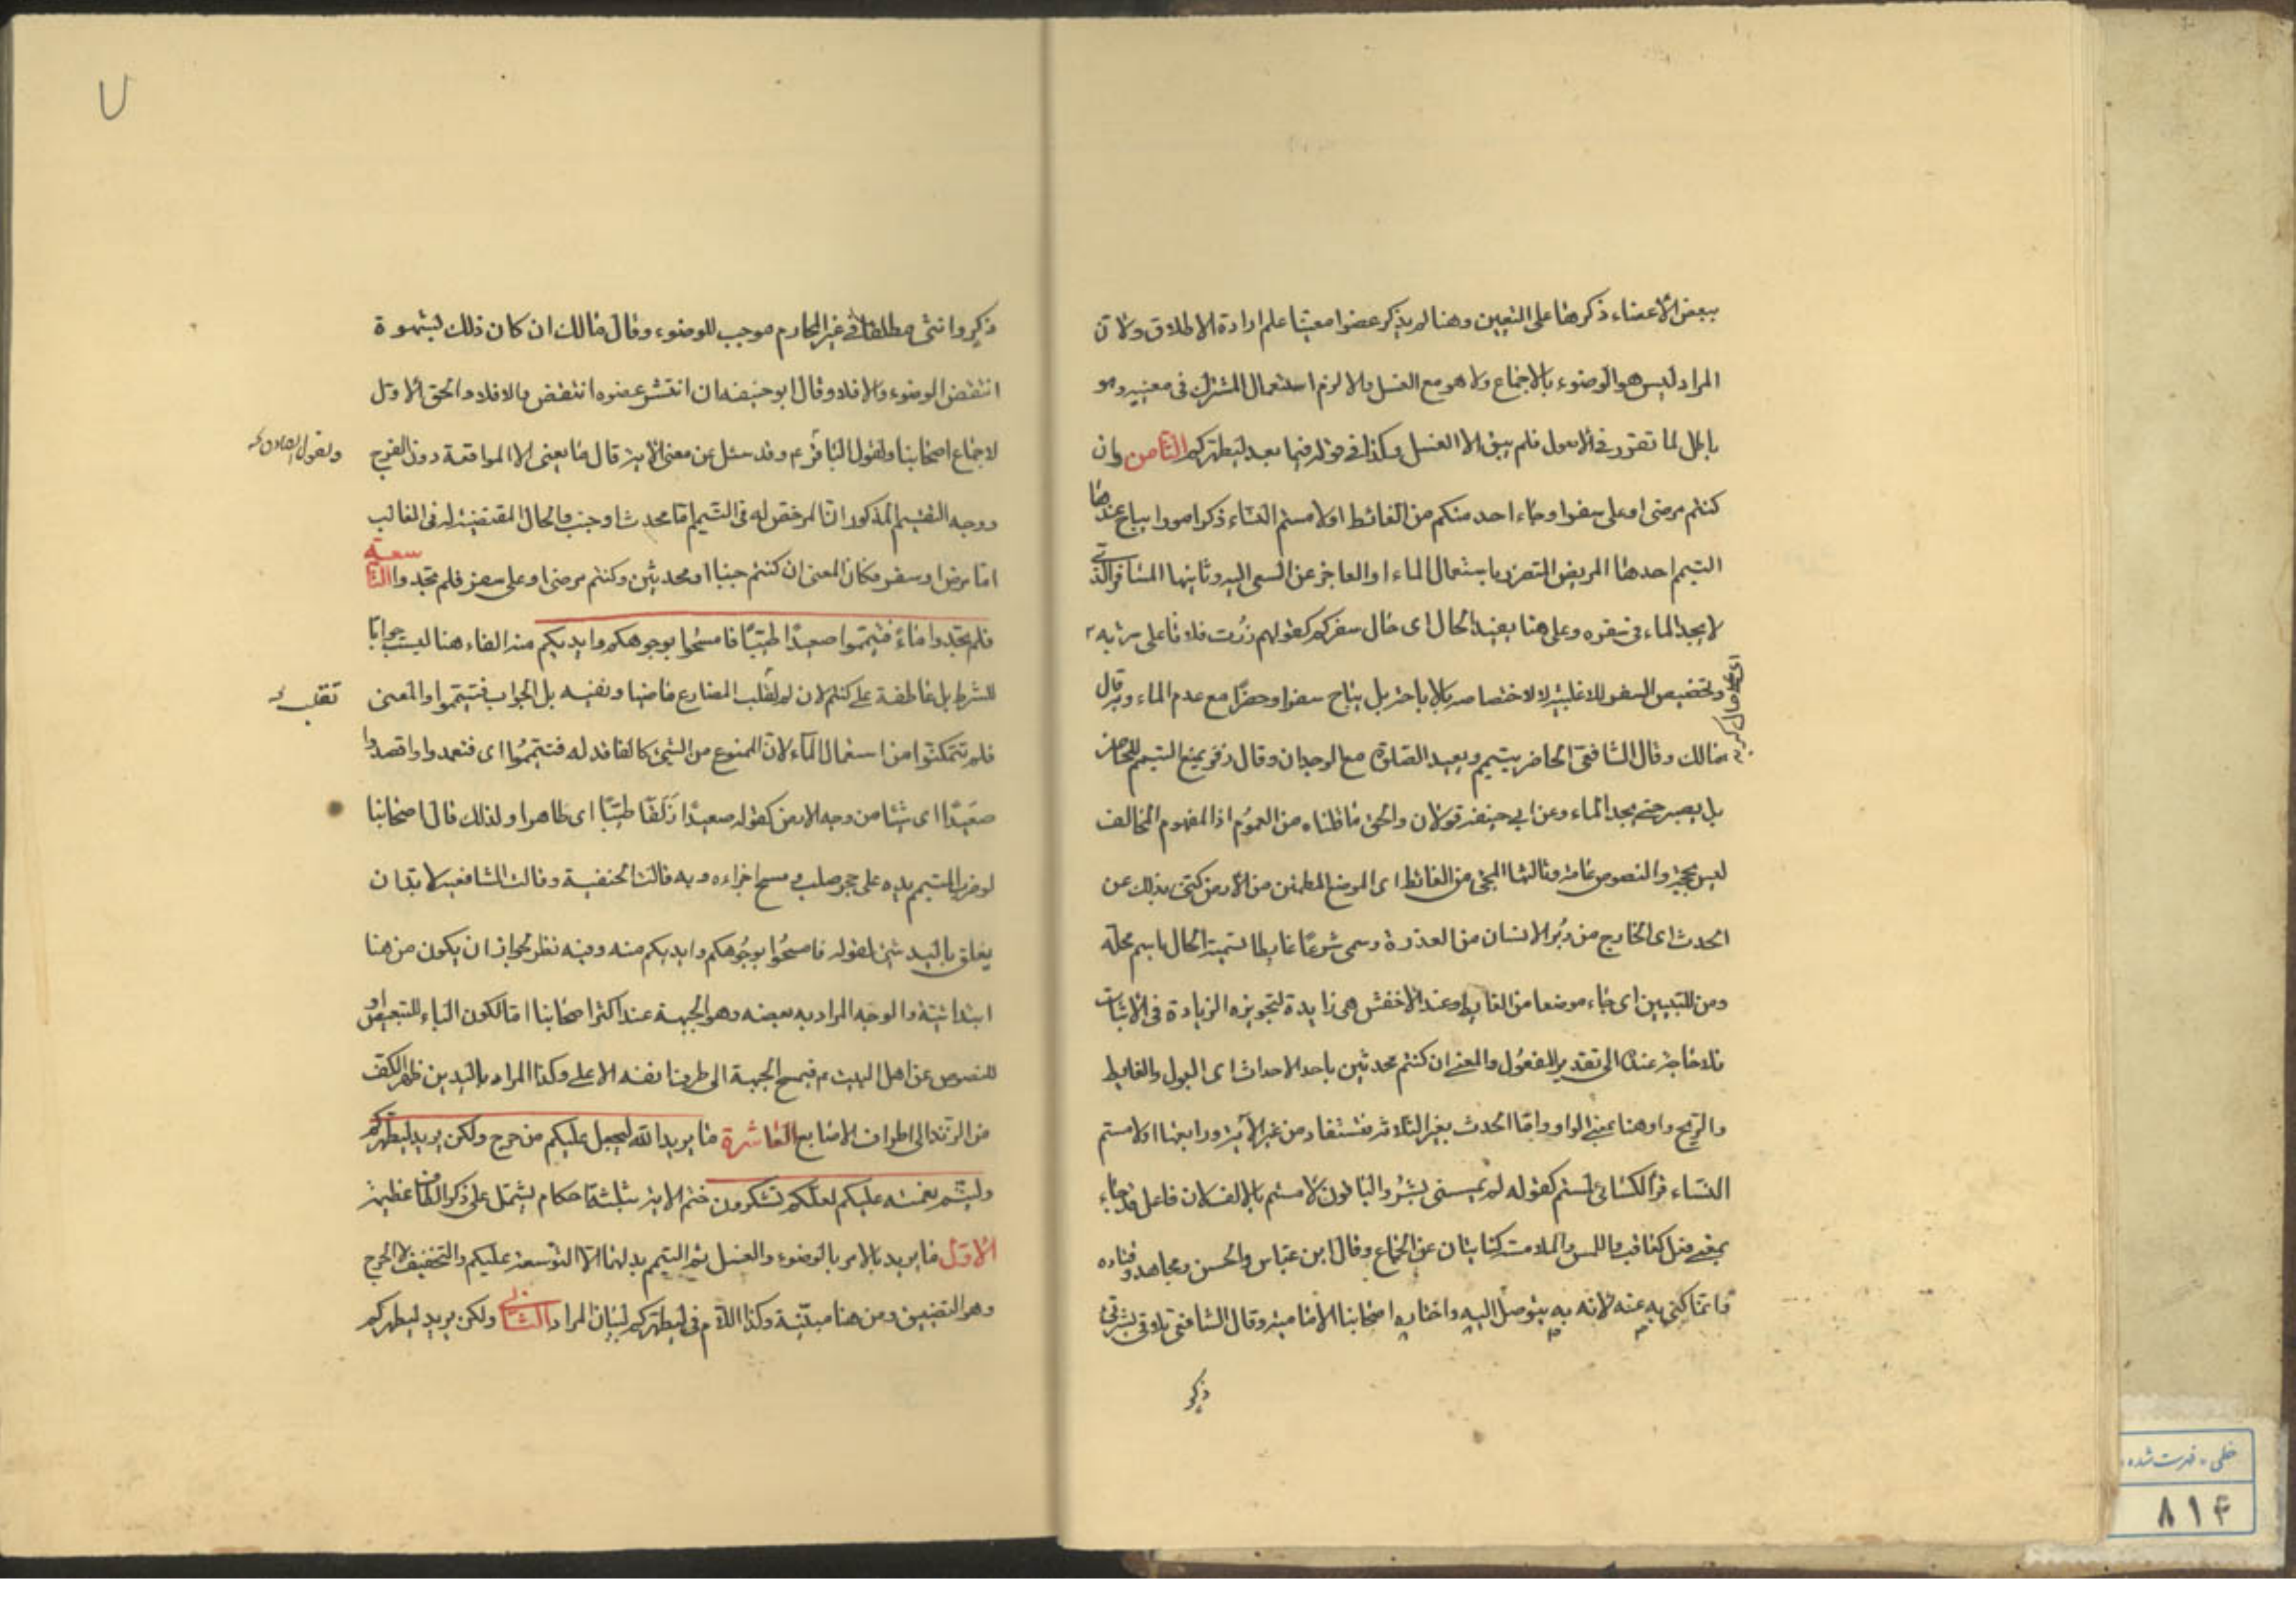 ببعض الأعضاء ذكرها على التعيين وهنا لم يذكر عضوا معينا علم ارادة الاطلاق ولان
المراد ليس هو الوضوء بالاجماع ولا هو مع الغسل والا لزم استعمال المشترك فى معنييه وهو
باطل لما تقرر فى الاصول فلم يبق الا الغسل وكذا فى قوله فيما بعد ليطهركم الثامن وان
كنتم مرضى او على سفر او جاء احد منكم من الغائط او لامستم النساء ذكر امورا يباح عندها
التيمم احدها المريض المتضرر باستعمال الماء او العاجز عن السعى اليه وثانيها المسافر الذى
لا يجد الماء فى سفره وعلى هنا يفيد الحال اى حال سفركم كقولهم زرت فلانا على شربه
وتخصيص السفر للاغلبية لا لاختصاصه بالاباحة بل يباح سفرا وحضرا مع عدم الماء وبه قال
مالك وقال الشافعى الحاضر يتيمم ويعيد الصلوة مع الوجدان وقال زفر يمنع التيمم للحاضر
بل يصبر حتى يجد الماء وعن ابى حنيفة قولان والحق ما قلناه من العموم اذ المفهوم المخالف
ليس بحجة والنصوص عامة وثالثها المجئ من الغائط اى الموضع المطمئن من الارض كنى بذلك عن
الحدث اى الخارج من دبر الانسان من العذرة وسمى شرعا غايطا تسمية الحال باسم محله
ومن للتبيين اى جاء موضعا من الغايط وعند الاخفش هى زايدة لتجويزه الزيادة فى الاثبات
فلا حاجة عنده الى تقدير المفعول والمعنى ان كنتم محدثين باحد الاحداث اى البول والغايط
والريح واو هنا بمعنى الواو واما الحدث بغير الثلاثة فتستفاد من غير الآية ورابعها او لامستم
النساء قرأ الكسائى لمستم كقوله لم يمسسنى بشر والباقون لامستم بالالف لان فاعل قد جاء
بمعنى فعل كعاقب واللمس والملامسة كنايتان عن الجماع وقال ابن عباس والحسن ومجاهد وقتاده
وانما كنى به عنه لانه به يتوصل اليه واختاره اصحابنا الامامية وقال الشافعى تلاقى بشرتى
ذكر
ذكر وانثى مطلقا فى غير المحارم موجب للوضوء وقال مالك ان كان ذلك لشهوة
انتقض الوضوء والا فلا وقال ابو حنيفه ان انتشر عضوه انتقض والا فلا والحق الاول
لاجماع اصحابنا ولقول الباقر ع وقد سئل عن معنى الاية قال ما يعنى الا المواقعة دون الفرج
ولقول الصادق
ووجه التقسيم المذكور ان المرخص له فى التيمم اما محدث او جنب والحال المقتضية له فى الغالب
اما مرض او سفر وكان المعنى ان كنتم جنبا او محدثين وكنتم مرضى او على سفر فلم تجدوا التاسعة
فلم تجدوا ماء فتيمموا صعيدا طيبا فامسحوا بوجوهكم وايديكم منه الفاء هنا ليست جوابا
للشرط بل عاطفة على كنتم لان لم لقلب المضارع ماضيا ونفيه بل الجواب فتيمموا والمعنى
تقلب
فلم تتمكنوا من استعمال الماء لان الممنوع من الشئ كالفاقد له فتيمموا اى فتعمدوا واقصدوا
صعيدا اى شيئا من وجه الارض كقوله صعيدا زلقا طيبا اى طاهرا ولذلك قال اصحابنا
لو ضرب المتيمم يده على حجر صلب ومسح اجزاءه وبه قالت الحنفية وقالت الشافعية لا بد ان
يعلق باليد شئ لقوله فامسحوا بوجوهكم وايديكم منه وفيه نظر لجواز ان يكون من هنا
ابتدائية والوجه المراد به بعضه وهو الجبهة عند اكثر اصحابنا اما لكون الباء للتبعيض او
للنصوص عن اهل البيت ع فيمسح الجبهة الى طرف انفه الاعلى وكذا المراد باليدين ظهر الكف
من الزند الى اطراف الاصابع العاشرة ما يريد الله ليجعل عليكم من حرج ولكن يريد ليطهركم
وليتم نعمته عليكم لعلكم تشكرون ختم الاية بثلثة احكام يشتمل على ذكر الطاف عظيمة
الاول ما يريد بالامر بالوضوء والغسل ثم التيمم بدلهما الا التوسعة عليكم والتخفيف لا الحرج
وهو التضييق ومن هنا مبينة وكذا اللام فى ليطهركم لبيان المراد الثانى ولكن يريد ليطهركم
٨١۴